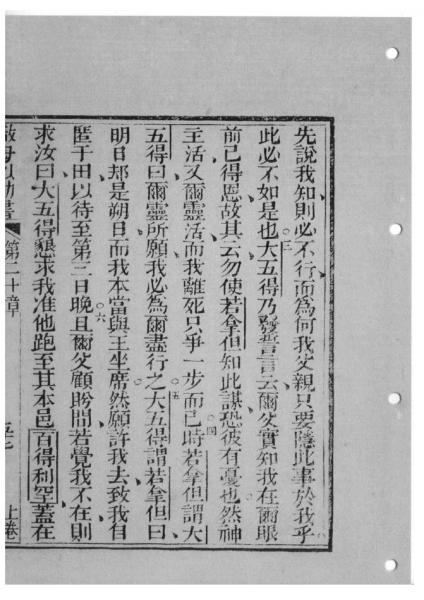 先說我知則必不行而為何我父親只要隱此事於我乎
此必不如是也○三大五得乃發誓言云爾父實知我在爾眼
前已得恩故其云勿使若拿但知此謀恐彼有憂也然神
主活又爾靈活而我離死只爭一步而已○四時若拿但謂大
五得曰爾靈所願我必為爾盡行之○五大五得謂若拿但曰
明日却是朔日而我本當與王坐席然願許我去致我自
匿于田以待至第三日晚○六且爾父顧盼問若覺我不在則
求汝曰大五得懇求我准他跑至其本邑百得利罕蓋在
第二十章 上卷